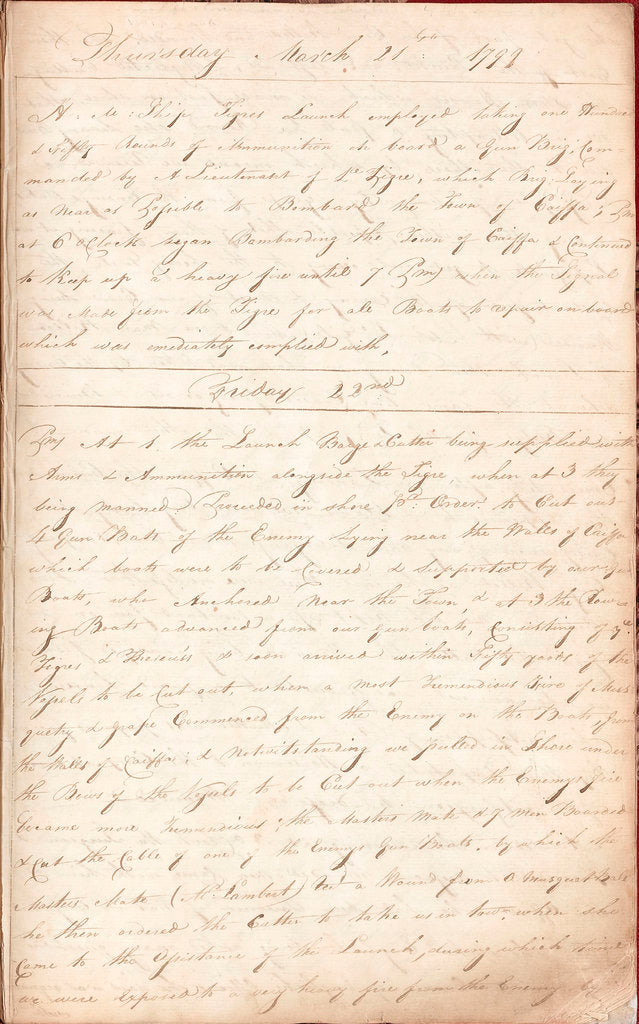 Thursday March 21st 1799
H: M: Ship Tigres Launch employed taking one Hundred
& Fifty Rounds of Ammunition on board a Gun Brig, Com-
manded by A Lieutenant of Le Tigre, which Brig Laying
as near as Possible to Bombard the Town of Caiffa; Pm
at 6 oClock began Bombarding the Town of Caiffa & Continued
to keep up a heavy fire until 7 Pm, when the Signal
was Made from the Tigre for all Boats to repair on board
which was emediately complied with,
Friday 22nd
Pm At 1. the Launch Barge & Cutter being supplied with
Arms & Ammunition alongside the Tigre, when at 3 they
being manned Proceeded in shore pr. Order. to Cut out
4 Gun Boats of the Enemy Lying near the Walls of Caiffa
which boats were to be Covered & supported by our Gun
Boats, who Anchored Near the Town, & at 3 the Row-
ing Boats advanced from our gun boats, Consisting of ye
Tigres & Theseus's & soon arrived within Fifty yards of the
Vessels to be Cut out, when a most Tremendious Fire of Mus-
quetry & grape Commenced from the Enemy on the Boats, from
the Walls of Caiffa; & Notwitstanding we pulled in Shore under
the Bows of the Vessels to be Cut out when the Enemys fire
became more Tremendious; the Masters Mate & 7 Men Boarded
& Cut the Cable of one of the Enemys Gun Boats. by which the
Masters Mate (Mr. Lambert) Recd a Wound from a Musquet Ball
he then ordered the Cutter to take us in tow when she
Came to the Assistance of the Launch, during which time
we were exposed to a very heavy fire from the Enemy by